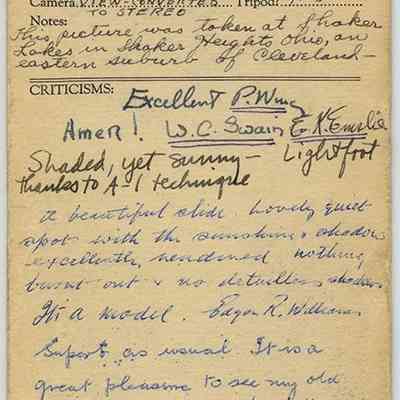 Camera VIEW-CONVERTED Tripod?
TO STEREO
Notes:
This picture was taken at Shaker
Lakes in Shaker Heights Ohio, an
eastern suburb of Cleveland—
CRITICISMS:
Excellent P. Wing
Amen! W.C. Swain E. K. Emslie
Shaded, yet sunny— Lightfoot
thanks to A-1 technique
A beautiful slide. Lovely quiet
spot with the sunshine & shadow
excellently rendered nothing
burnt out & no detailless shadows
It's a model. Edgar R. Williams
Superb as usual. It is a
great pleasure to see my old